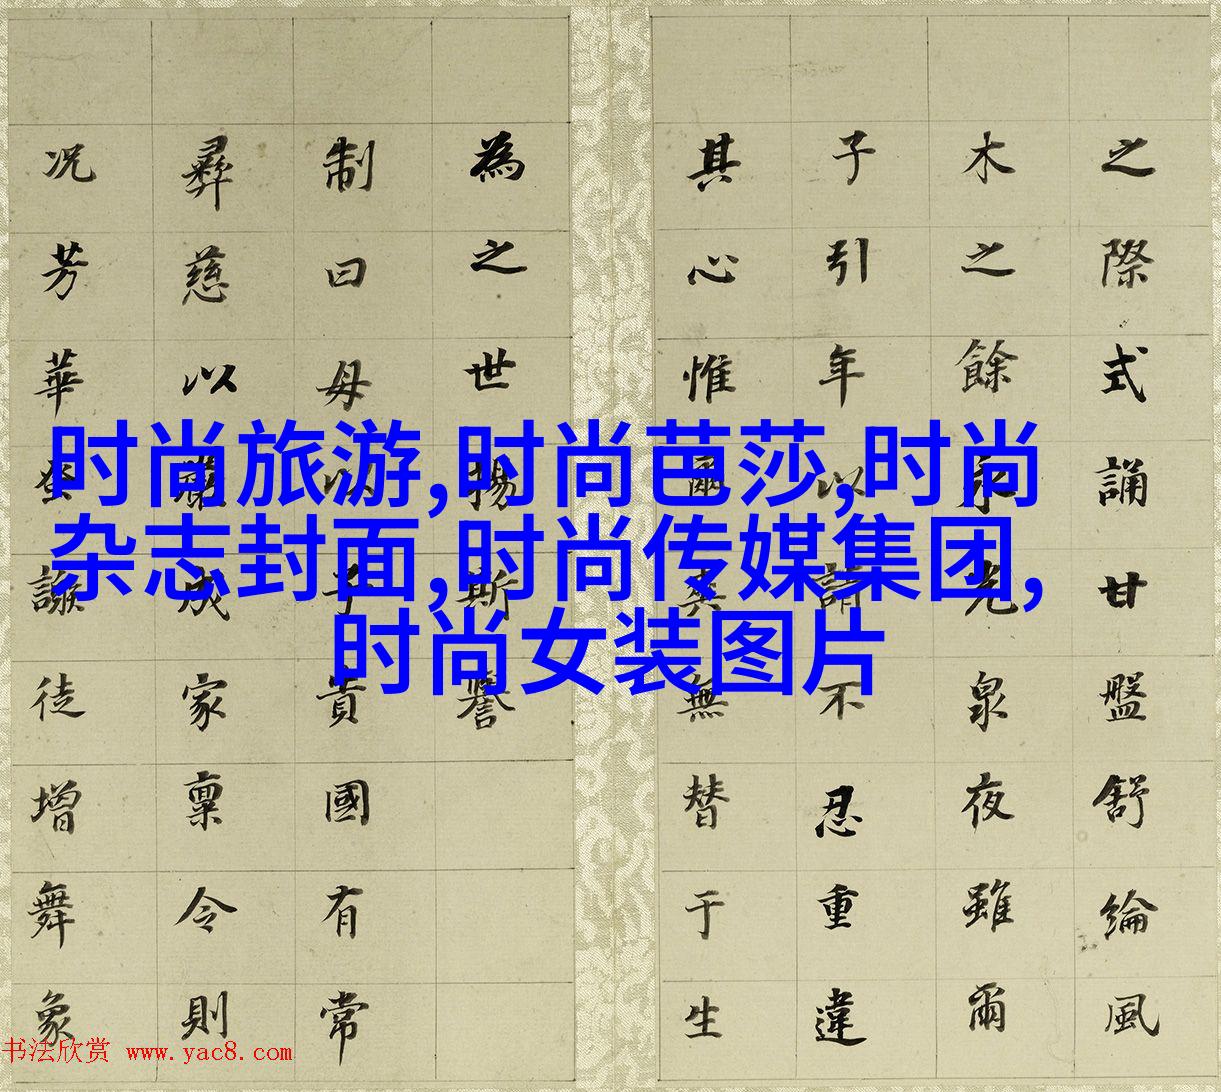 之際式誦甘盤舒綸風
木之餘永光泉夜雖爾
子引年以請不忍重違
其心惟爾其無替于生
為之世揚斯譽
制曰母以子貴國有常
彝慈以成家稟令則
况芳華蚤謝徒增舞象
时尚旅游,时尚芭莎,时尚
杂志封面,时尚传媒集团,
时尚女装图片
书法欣赏 www.yac8.com